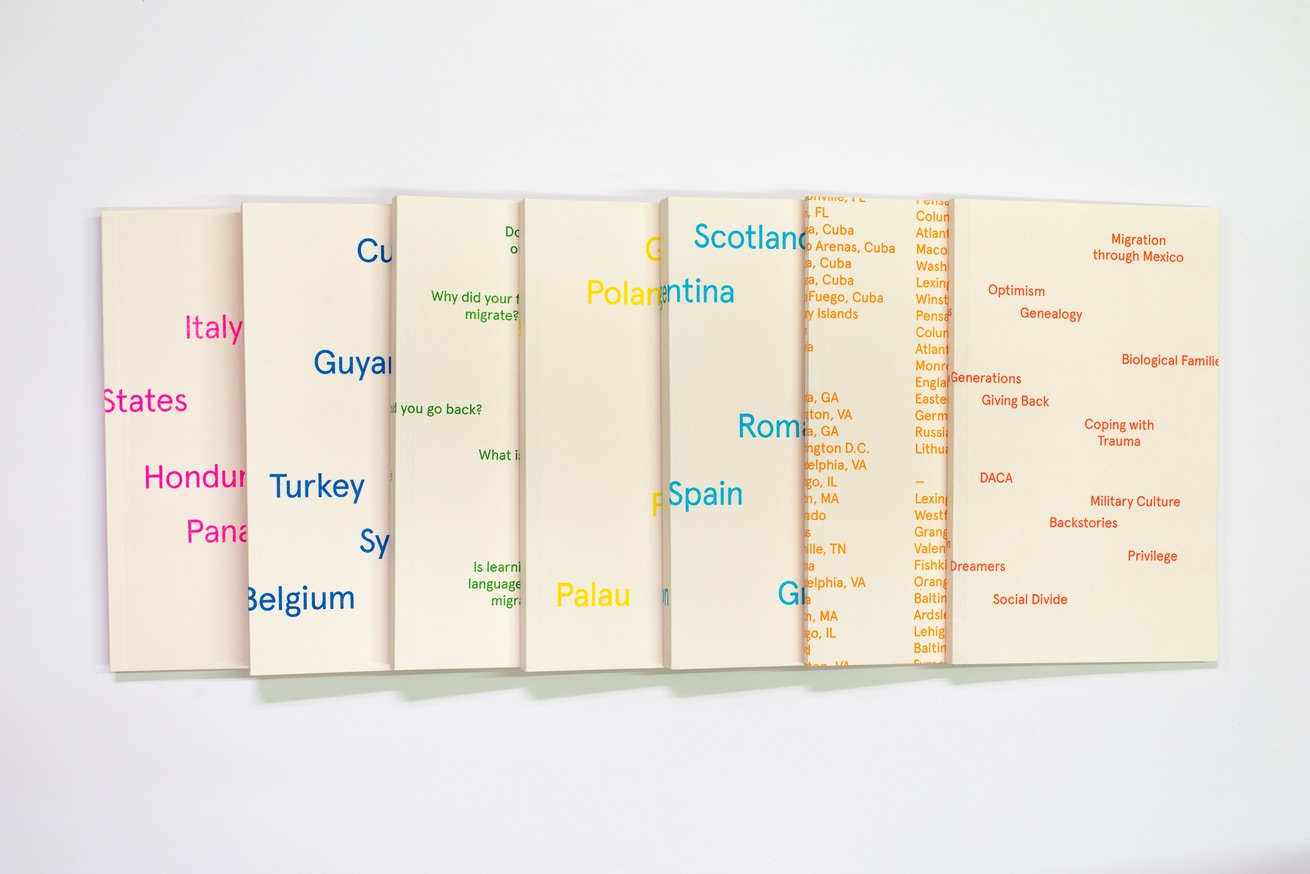 Italy
States
Hondur
Pana
Cu
Guya
Turkey
Sy
Belgium
Do
o
Why did your f
migrate?
you go back?
What i
Is learni
language
migra
G
Polan
P
Palau
Scotland
entina
Roma
Spain
Gr
onville, FL
, FL
a, Cuba
o Arenas, Cuba
a, Cuba
a, Cuba
Fuego, Cuba
y Islands
a
a, GA
gton, VA
a, GA
ington D.C.
elphia, VA
go, IL
n, MA
ado
s
ille, TN
a
elphia, VA
a
n, MA
go, IL
d
ton, VA
Pensa
Colun
Atlant
Maco
Wash
Lexin
Winst
Pensa
Colun
Atlant
Monr
Engla
Easte
Germ
Russi
Lithu
—
Lexin
Westf
Grang
Valen
Fishki
Orang
Baltin
Ardsl
Lehig
Baltin
Migration
through Mexico
Optimism
Genealogy
Biological Familie
Generations
Giving Back
Coping with
Trauma
DACA
Military Culture
Backstories
Privilege
Dreamers
Social Divide